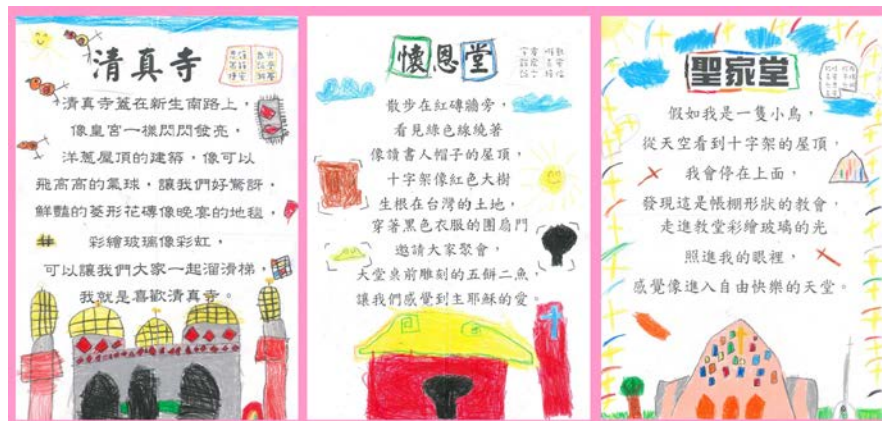 清真寺
清真寺蓋在新生南路上，
像皇宮一樣閃閃發亮，
洋蔥屋頂的建築，像可以
飛高高的氣球，讓我們好驚訝，
鮮豔的菱形花磚像晚宴的地毯，
彩繪玻璃像彩虹，
可以讓我們大家一起溜滑梯，
我就是喜歡清真寺。
懷恩堂
散步在紅磚牆旁，
看見綠色線繞著
像讀書人帽子的屋頂，
十字架像紅色大樹
生根在台灣的土地，
穿著黑色衣服的團扇門
邀請大家聚會，
天堂桌前雕刻的五餅二魚，
讓我們感覺到主耶穌的愛。
聖家堂
假如我是一隻小鳥，
從天空看到十字架的屋頂，
我會停在上面，
發現這是帳棚形狀的教會，
走進教堂彩繪玻璃的光
照進我的眼裡，
感覺像進入自由快樂的天堂。